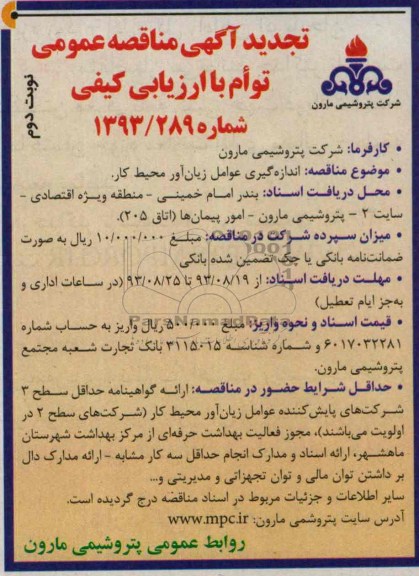 تجدید آگهی مناقصه عمومی
توأم با ارزیابی کیفی
شماره ۱۳۹۳/۲۸۹
نوبت دوم
شرکت پتروشیمی مارون
• کارفرما: شرکت پتروشیمی مارون
• موضوع مناقصه: اندازه‌گیری عوامل زیان‌آور محیط کار.
• محل دریافت اسناد: بندر امام خمینی - منطقه ویژه اقتصادی -
سایت ۲ - پتروشیمی مارون - امور پیمان‌ها (اتاق ۲۰۵).
• میزان سپرده شرکت در مناقصه: مبلغ ۱۰/۰۰۰/۰۰۰ ریال به صورت
ضمانت‌نامه بانکی یا چک تضمین شده بانکی
• مهلت دریافت اسناد: از ۹۳/۰۸/۱۹ تا ۹۳/۰۸/۲۵ (در ساعات اداری و
به‌جز ایام تعطیل)
• قیمت اسناد و نحوه واریز: مبلغ ۵۰۰/۰۰۰ ریال واریز به حساب شماره
۶۰۱۷۰۳۲۲۸۱ و شماره شناسه ۳۱۱۵۰۱۵ بانک تجارت شعبه مجتمع
پتروشیمی مارون.
• حداقل شرایط حضور در مناقصه: ارائه گواهینامه حداقل سطح ۳
شرکت‌های پایش‌کننده عوامل زیان‌آور محیط کار (شرکت‌های سطح ۲ در
اولویت می‌باشند)، مجوز فعالیت بهداشت حرفه‌ای از مرکز بهداشت شهرستان
ماهشهر، ارائه اسناد و مدارک انجام حداقل سه کار مشابه - ارائه مدارک دال
بر داشتن توان مالی و توان تجهزاتی و مدیریتی و...
سایر اطلاعات و جزئیات مربوط در اسناد مناقصه درج گردیده است.
آدرس سایت پتروشمی مارون: www.mpc.ir
روابط عمومی پتروشیمی مارون
ParaNamadData